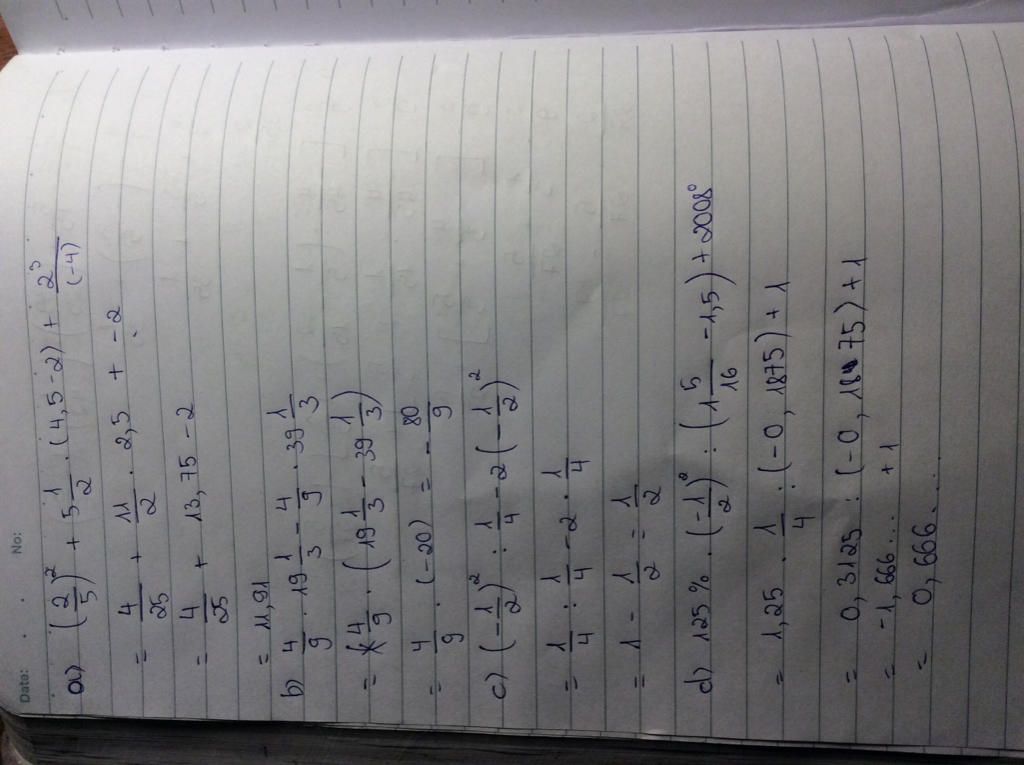 Date: No:
a) (2/5)² + 5 1/2 . (4,5 - 2) + 2³/(-4)
= 4/25 + 11/2 . 2,5 + -2
= 4/25 + 13,75 - 2
= 11,91
b) 4/9 . 19 1/3 - 4/9 . 39 1/3
= (4/9 . (19 1/3 - 39 1/3)
= 4/9 . (-20) = - 80/9
c) (-1/2)² : 1/4 - 2 (-1/2)²
= 1/4 : 1/4 - 2 . 1/4
= 1 - 1/2 = 1/2
d) 125 % . (-1/2)² : (1 5/16 - 1,5) + 2008⁰
= 1,25 . 1/4 : (-0,1875) + 1
= 0,3125 : (-0,1875) + 1
= -1,666... + 1
= 0,666...